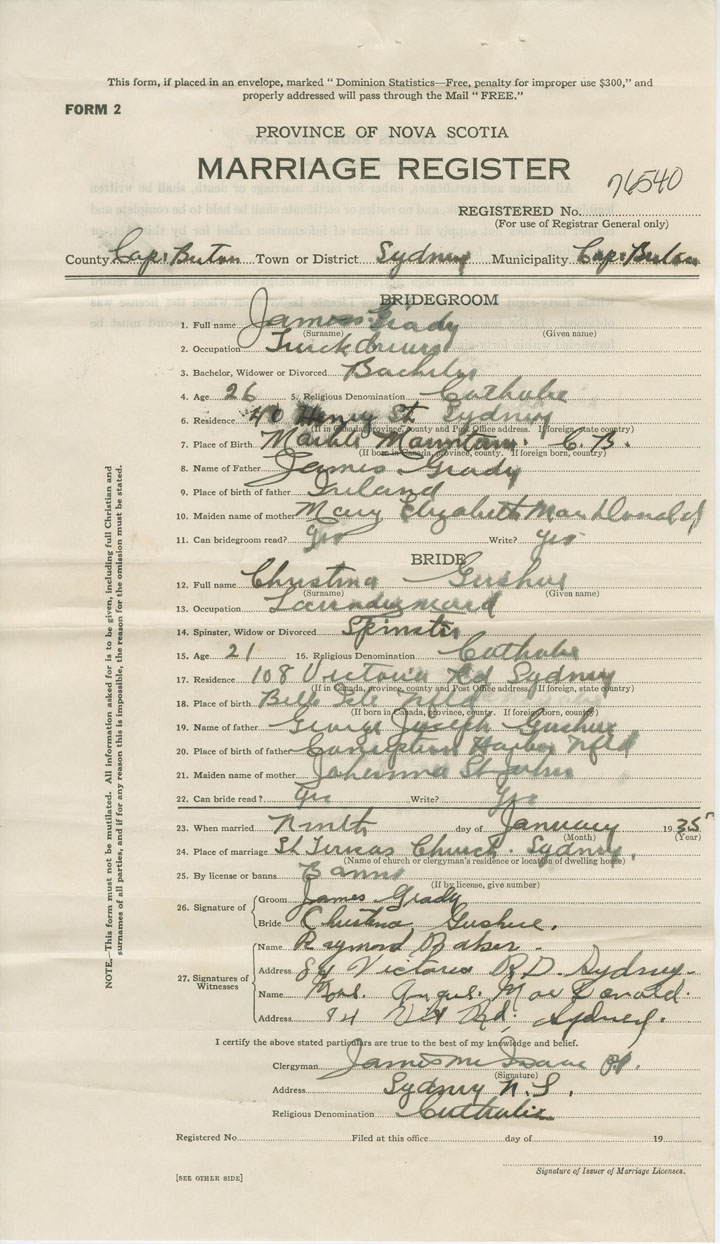 This form, if placed in an envelope, marked “ Dominion Statistics—Free, penalty for improper use $300,” and
properly addressed will pass through the Mail “ FREE.”
FORM 2
PROVINCE OF NOVA SCOTIA
MARRIAGE REGISTER
76540
REGISTERED No.
(For use of Registrar General only)
County Cape Breton Town or District Sydney Municipality Cape Breton
BRIDEGROOM
1. Full name James Grady
(Surname) (Given name)
2. Occupation Truckdriver
3. Bachelor, Widower or Divorced Bachelor
4. Age 26 5. Religious Denomination Catholic
6. Residence 40 Henry St Sydney
(If in Canada, province, county and Post Office address. If foreign, state country)
7. Place of Birth Marble Mountain. C.B.
(If born in Canada, province, county. If foreign born, country)
8. Name of Father James Grady
9. Place of birth of father Ireland
10. Maiden name of mother Mary Elizabeth MacDonald
11. Can bridegroom read? Yes Write? Yes
BRIDE
12. Full name Christina Gushue
(Surname) (Given name)
13. Occupation Laundrymaid
14. Spinster, Widow or Divorced Spinster
15. Age 21 16. Religious Denomination Catholic
17. Residence 108 Victoria Rd Sydney
(If in Canada, province, county and Post Office address. If foreign, state country)
18. Place of birth Bell Isle Nfld
(If born in Canada, province, county. If foreign born, country)
19. Name of father George Joseph Gushue
20. Place of birth of father Conception Harbor Nfld
21. Maiden name of mother Johanna St John
22. Can bride read? Yes Write? Yes
23. When married Ninth day of January 1935
(Month) (Year)
24. Place of marriage St Teresas Church. Sydney.
(Name of church or clergyman's residence or location of dwelling house)
25. By license or banns Banns
(If by license, give number)
26. Signature of Groom James Grady
Bride Christina Gushue.
27. Signatures of Witnesses
Name Raymond Baker.
Address 84 Victoria RD. Sydney.
Name Mrs. Angus MacDonald.
Address 84 Vict Rd. Sydney.
I certify the above stated particulars are true to the best of my knowledge and belief.
Clergyman James McIsaac P.P.
(Signature)
Address Sydney N.S.
Religious Denomination Catholic
Registered No. Filed at this office day of 19
Signature of Issuer of Marriage Licenses.
[SEE OTHER SIDE]
NOTE.—This form must not be mutilated. All information asked for is to be given, including full Christian and
surnames of all parties, and if for any reason this is impossible, the reason for the omission must be stated.